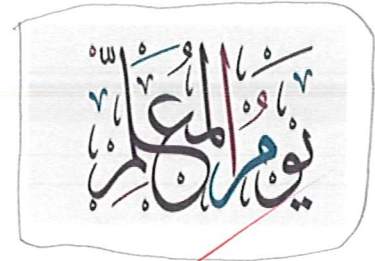 يومُ المُعلِّمِ